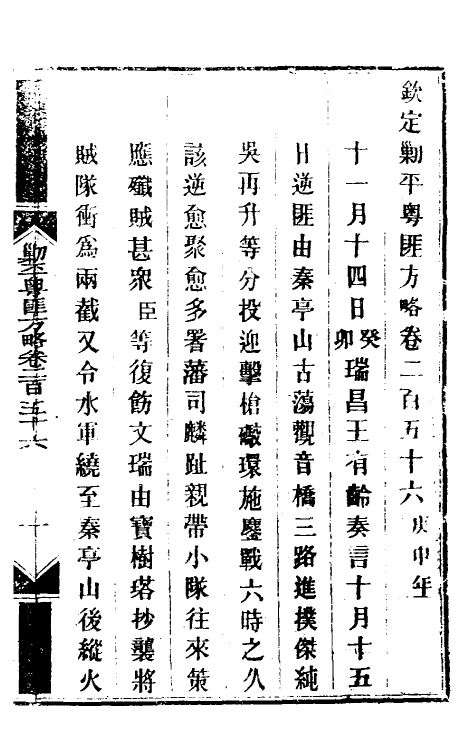 欽定剿平粵匪方略卷二百五十六庚申年
十一月十四日癸卯瑞昌王有齡奏言十月十五
日逆匪由秦亭山古蕩觀音橋三路進撲傑純
吳再升等分投迎擊槍礮環施鏖戰六時之久
該逆愈聚愈多署藩司麟趾親帶小隊往來策
應殲賊甚衆臣等復飭文瑞由寶樹塔抄襲將
賊隊衝為兩截又令水軍繞至秦亭山後縱火
剿平粵匪方略卷二百五十六
一